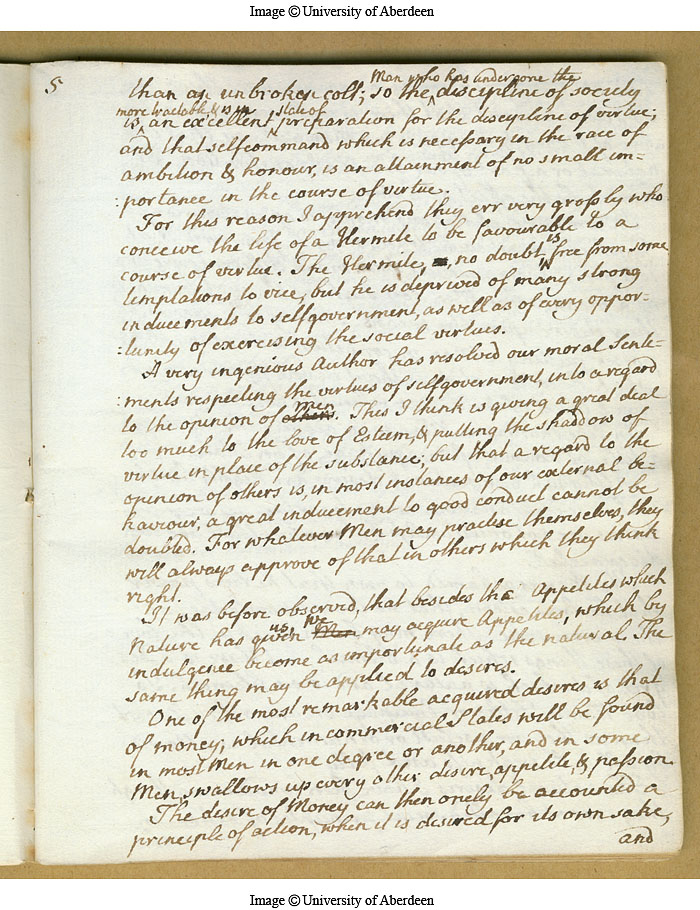 Image © University of Aberdeen
5
than an unbroken colt; so the Man who has undergone the discipline of society
is more tractable & is in an excellent state of preparation for the discipline of virtue;
and that selfcommand which is necessary in the race of
ambition & honour, is an attainment of no small im=
:portance in the course of virtue.
For this reason I apprehend they err very grossly who
conceive the life of a Hermite to be favourable to a
course of virtue. The Hermite, no doubt, is free from some
temptations to vice, but he is deprived of many strong
inducements to selfgovernment, as well as of every oppor-
:tunity of exercising the social virtues.
A very ingenious Author has resolved our moral Senti-
:ments respecting the virtues of selfgovernment, into a regard
to the opinion of others Men. This I think is giving a great deal
too much to the love of Esteem, & putting the shaddow of
virtue in place of the substance; but that a regard to the
opinion of others is, in most instances of our external be=
haviour, a great inducement to good conduct cannot be
doubted. For whatever Men may practise themselves, they
will always approve of that in others which they think
right.
It was before observed, that besides the Appetites which
Nature has given us, Men we may acquire Appetites, which by
indulgence become as importunate as the natural. The
same thing may be applied to desires.
One of the most remarkable acquired desires is that
of money, which in commercial States will be found
in most Men in one degree or another, and in some
Men, swallows up every other desire, appetite, & passion.
The desire of Money can then onely be accounted a
principle of action, when it is desired for its own sake,
and
Image © University of Aberdeen